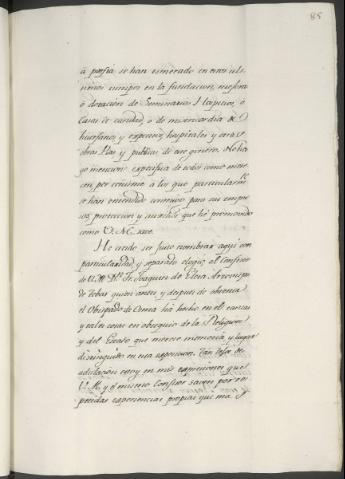 85
à porfia se han esmerado en estos ulti-
mos tiempos en la fundacion, mejora
ò dotacion de Seminarios, Hospicios, ò
Casas de caridad, ò de misericordia de
huerfanos, y expositos, hospitales y otras
obras Pias y publicas de este genero. No ha-
go mencion especifica de todos como mere-
cen por ceñirme à los que particularm.te
se han entendido conmigo para sus empre-
sas, proteccion y auxilios que hè promovido
como V. M. save.
He creido ser justo nombrar aqui con
particularidad, y separado elogio, al Confesor
de V. M. D.n Fr. Joaquin de Eleta, Arzobispo
de Tebas, quien antes, y despues de obtener
el Obispado de Osma ha hecho en el tantas
y tales cosas en obsequio de la Religion
y del Estado que merece memoria, y lugar
distinguido en esta exposicion. Tan lejos de
adulacion estoy en mis expresiones que
V. M. y el mismo Confesor saven por re-
petidas experiencias propias que ma